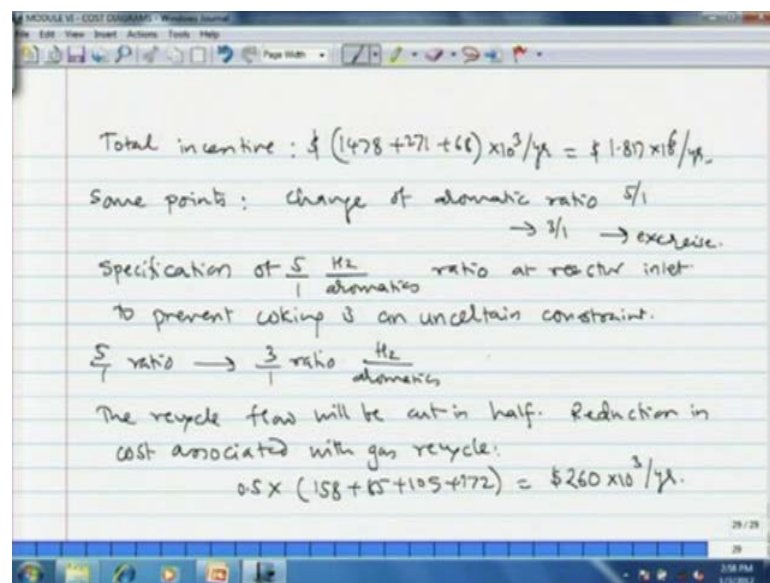 MODULE VI - COST DIAGRAMS - Windows Journal
File Edit View Insert Actions Tools Help
Page Width
Total incentive : $ (1478 +271 +68) ×10³/yr = $ 1.817 ×10⁶/yr.
Some points : Change of aromatic ratio 5/1
→ 3/1 → excercise.
Specification of 5/1 H2/aromatics ratio at reactor inlet
to prevent coking is an uncertain constraint.
5/1 ratio → 3/1 ratio H2/aromatics
The recycle flow will be cut in half. Reduction in
cost associated with gas recycle:
0.5 × (158 + 85 +105 +172) = $260 ×10³/yr.
29 / 29
29
2:58 PM
1/3/2012